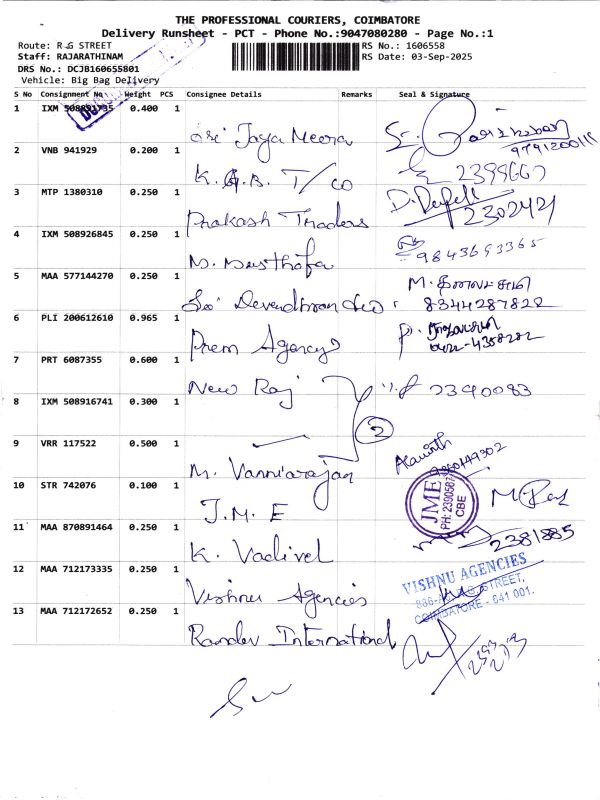 THE PROFESSIONAL COURIERS, COIMBATORE
Delivery Runsheet - PCT - Phone No.:9047080280 - Page No.:1
Route: R G STREET
RS No.: 1606558
Staff: RAJARATHINAM
RS Date: 03-Sep-2025
DRS No.: DCJB160655801
Vehicle: Big Bag Delivery
S No Consignment No Weight PCS Consignee Details Remarks Seal & Signature
1 IXM 508891735 0.400 1 Sri Jaya Meera
2 VNB 941929 0.200 1 K.G.B. T/co 2399667
3 MTP 1380310 0.250 1 Prakash Traders 2302421
4 IXM 508926845 0.250 1 M. Musthafa 9843693365
5 MAA 577144270 0.250 1 Sri Devendhran 8344287822
6 PLI 200612610 0.965 1 Prem Agency 0422-4358282
7 PRT 6087355 0.600 1 New Raj 2390083
8 IXM 508916741 0.300 1 2
9 VRR 117522 0.500 1 M. Vanniarajan
10 STR 742076 0.100 1 J.M.E
JME
CBE
11 MAA 870891464 0.250 1 K. Vadivel 2381885
12 MAA 712173335 0.250 1 Vishnu Agencies
VISHNU AGENCIES
STREET,
COIMBATORE - 641 001.
13 MAA 712172652 0.250 1 Ramdev International